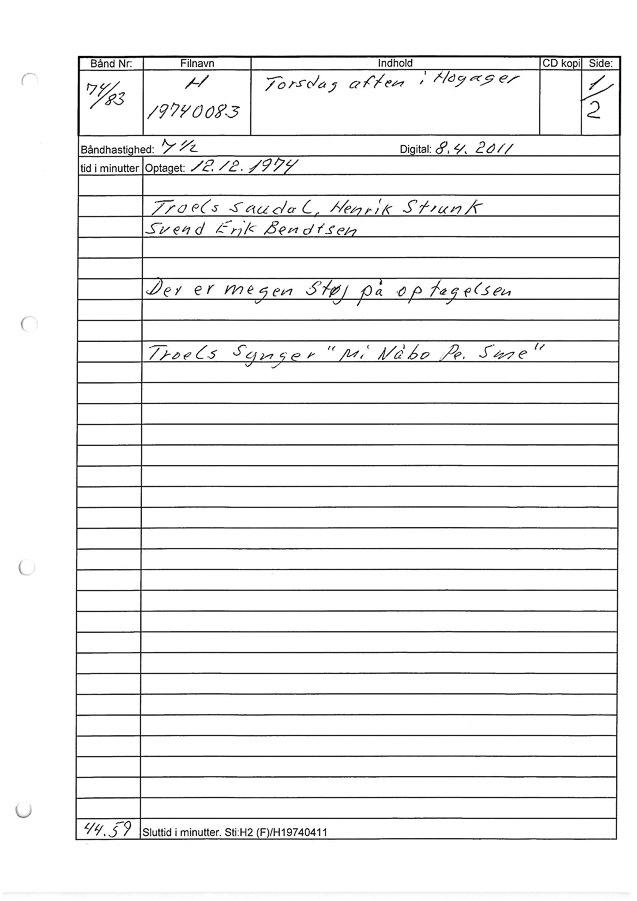 Bånd Nr: Filnavn Indhold CD kopi Side:
74/83 H Torsdag aften i Hogager 1/2
19740083
Båndhastighed: 7 1/2 Digital: 8.4. 2011
tid i minutter Optaget: 12.12. 1974
Troels Saudal, Henrik Strunk
Svend Erik Bendtsen
Der er megen Støj på optagelsen
Troels Synger "Mi Nåbo Pe. Sme"
44.59 Sluttid i minutter. Sti:H2 (F)/H19740411